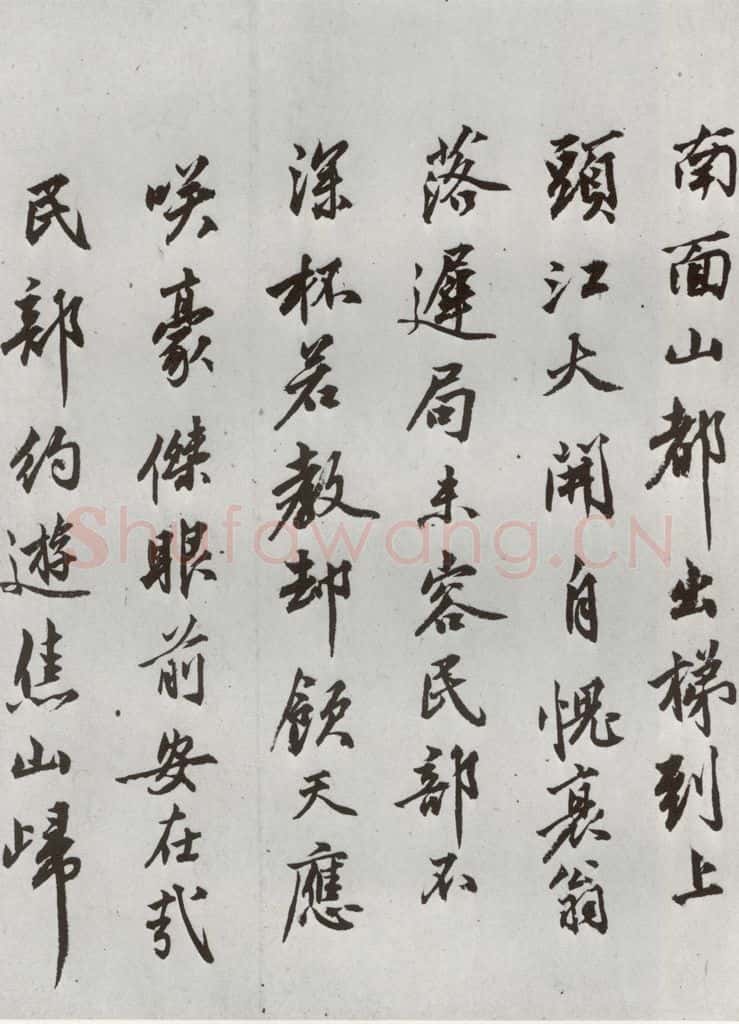 南面山都出梯到上
頭江大開自愧衰翁
落遲局未容民部不
深杯若教却顧天應
咲豪傑眼前安在哉
民部約遊焦山歸
Shufawang.CN